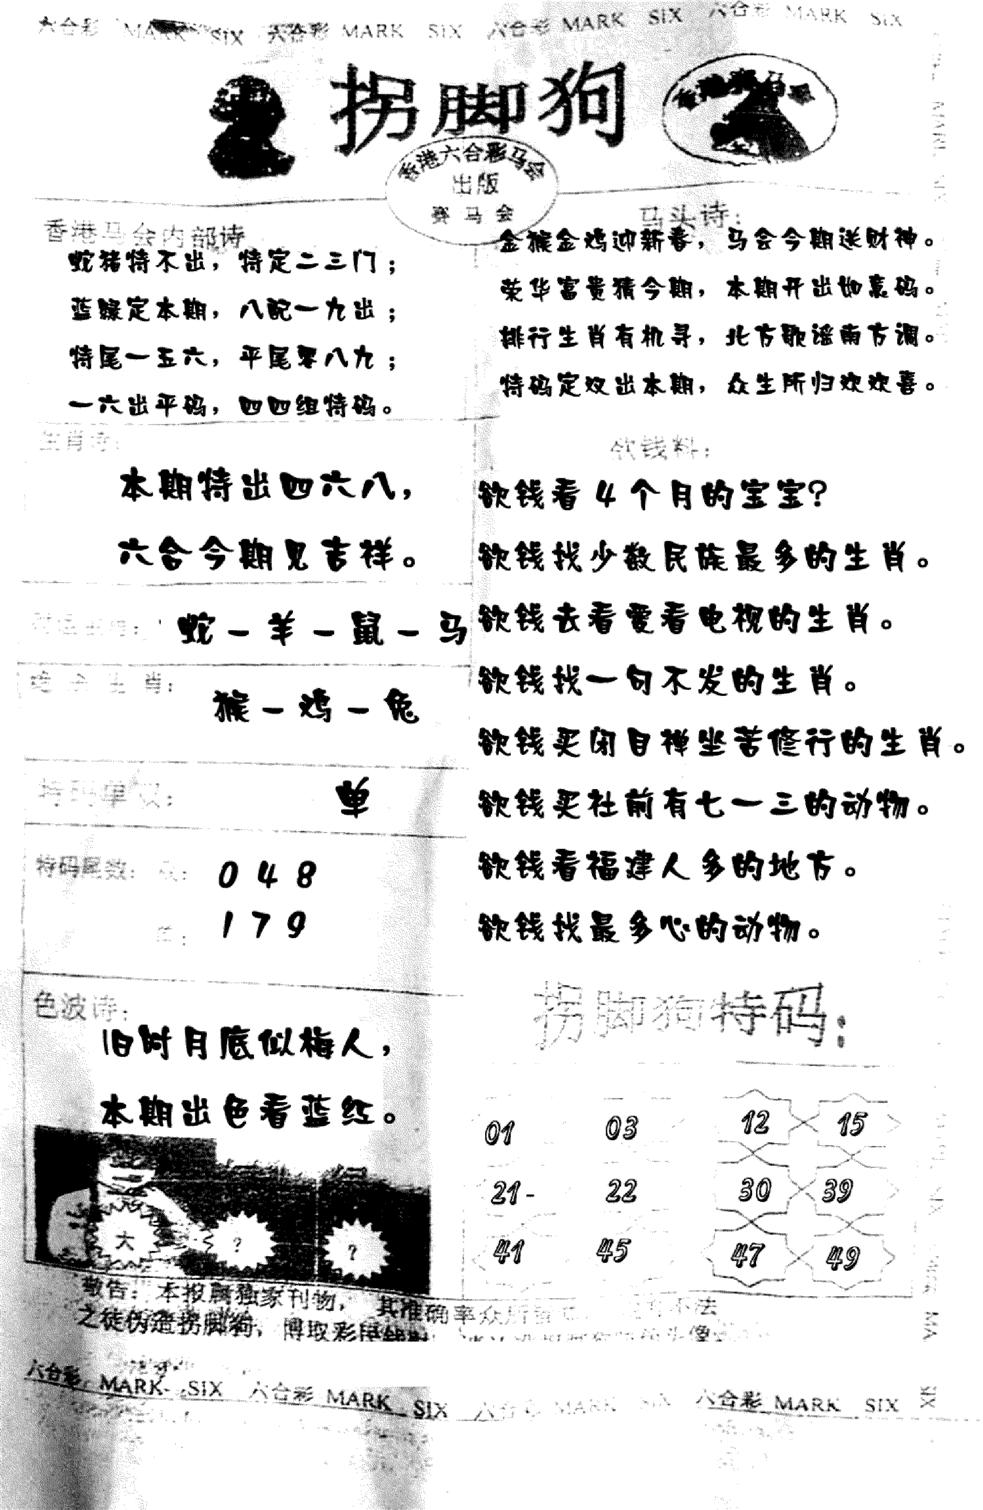 六合彩 MARK SIX 六合彩 MARK SIX 六合彩 MARK SIX 六合彩 MARK SIX
拐脚狗
香港赛马会
香港六合彩马会
出版
赛马会
香港马会内部诗
蛇猪特不出，特定二三门；
蓝绿定本期，八配一九出；
特尾一五六，平尾零八九；
一六出平码，四四组特码。
马头诗：
金猴金鸡迎新春，马会今期送财神。
荣华富贵猜今期，本期开出如意码。
排行生肖有机寻，北方歌谣南方调。
特码定双出本期，众生所归欢欢喜。
生肖诗：
本期特出四六八，
六合今期见吉祥。
蛇－羊－鼠－马
生肖：
猴－鸡－兔
特码单双：
单
特码尾数：双：
048
单：
179
色波诗：
旧时月底似梅人，
本期出色看蓝红。
大
?
?
欲钱料：
欲钱看4个月的宝宝?
欲钱找少数民族最多的生肖。
欲钱去看爱看电视的生肖。
欲钱找一句不发的生肖。
欲钱买闭目禅坐苦修行的生肖。
欲钱买社前有七一三的动物。
欲钱看福建人多的地方。
欲钱找最多心的动物。
拐脚狗特码：
01 03 12 15
21- 22 30 39
41 45 47 49
敬告：本报属独家刊物，其准确率众所 不法
之徒伪造拐脚狗，博取彩民 头像
六合彩 MARK SIX 六合彩 MARK SIX 六合彩 MARK SIX 六合彩 MARK SIX